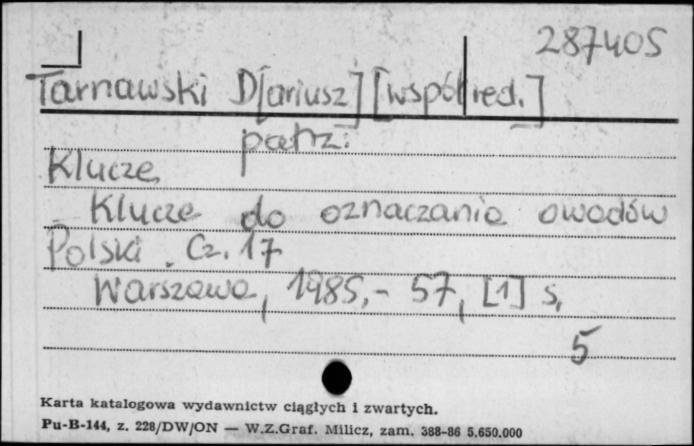 287405
Tarnawski D[ariusz] [współred.]
patrz:
Klucze
Klucze do oznaczania owadów
Polski. Cz. 17
Warszawa, 1985,- 57, [1] s,
5
Karta katalogowa wydawnictw ciągłych i zwartych.
Pu-B-144, z. 228/DW/ON — W.Z.Graf. Milicz, zam. 388-86 5.650.000